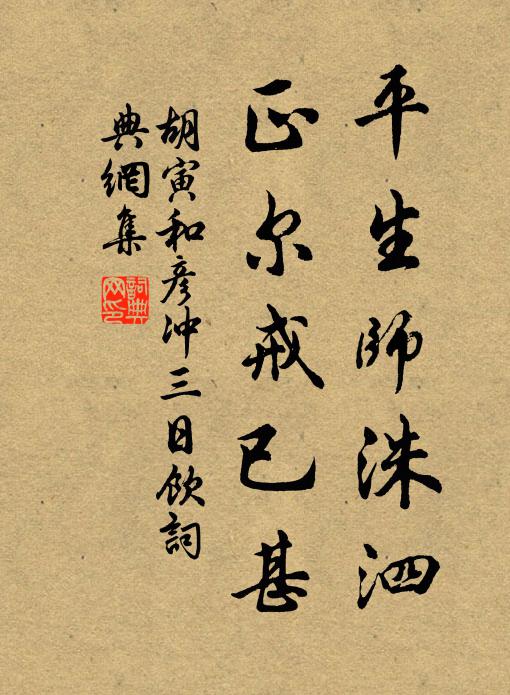 平生師洙泗
正尔戒已甚
胡寅和彦冲三日飲詞
典網集
詞典网印